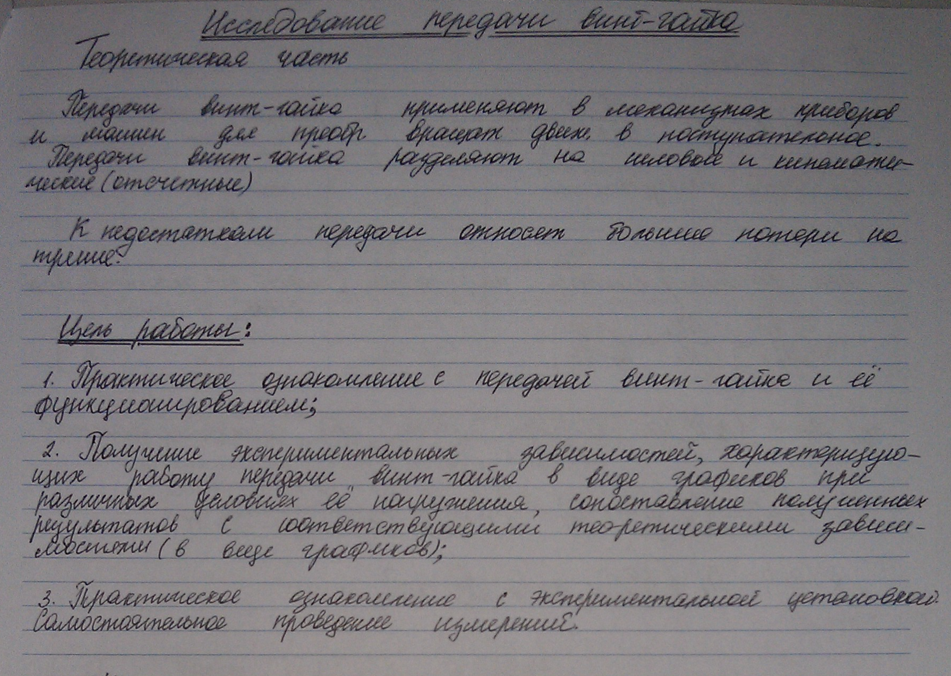 Исследование передачи винт-гайка
Теоретическая часть
Передачи винт-гайка применяют в механизмах приборов
и машин для преобр вращат движ. в поступательное.
Передачи винт-гайка разделяют на силовые и кинемати-
ческие (отсчетные)
К недостаткам передачи относят большие потери на
трение.
Цель работы:
1. Практическое ознакомление с передачей винт-гайка и её
функционированием;
2. Получение экспериментальных зависимостей, характеризую-
щих работу передачи винт-гайка в виде графиков при
различных условиях её нагружения, сопоставление полученных
результатов с соответствующими теоретическими зависи-
мостями (в виде графиков);
3. Практическое ознакомление с экспериментальной установкой.
Самостоятельное проведение измерений.